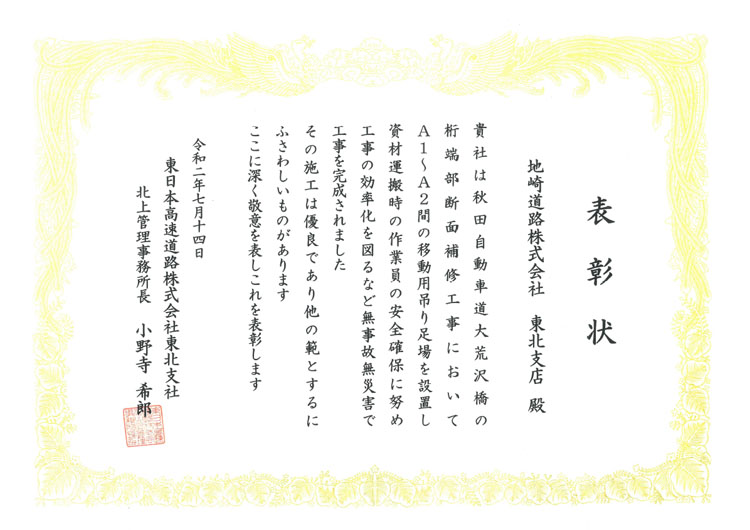 表彰状
地崎道路株式会社 東北支店 殿
貴社は秋田自動車道大荒沢橋の
桁端部断面補修工事において
A1～A2間の移動用吊り足場を設置し
資材運搬時の作業員の安全確保に努め
工事の効率化を図るなど無事故無災害で
工事を完成されました
その施工は優良であり他の範とするに
ふさわしいものがあります
ここに深く敬意を表しこれを表彰します
令和二年七月十四日
東日本高速道路株式会社東北支社
北上管理事務所長 小野寺 希郎